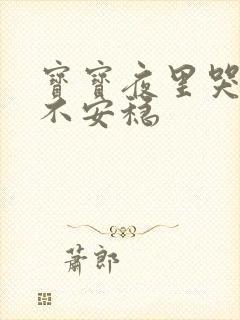 寶寶夜里哭
不安穩
蕭郎